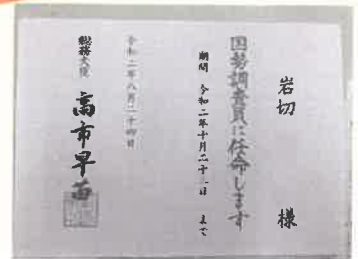 岩切 様
国勢調査員に任命します
期間 令和二年十月二十 日 まで
令和二年八月二十四日
総務大臣 高市早苗